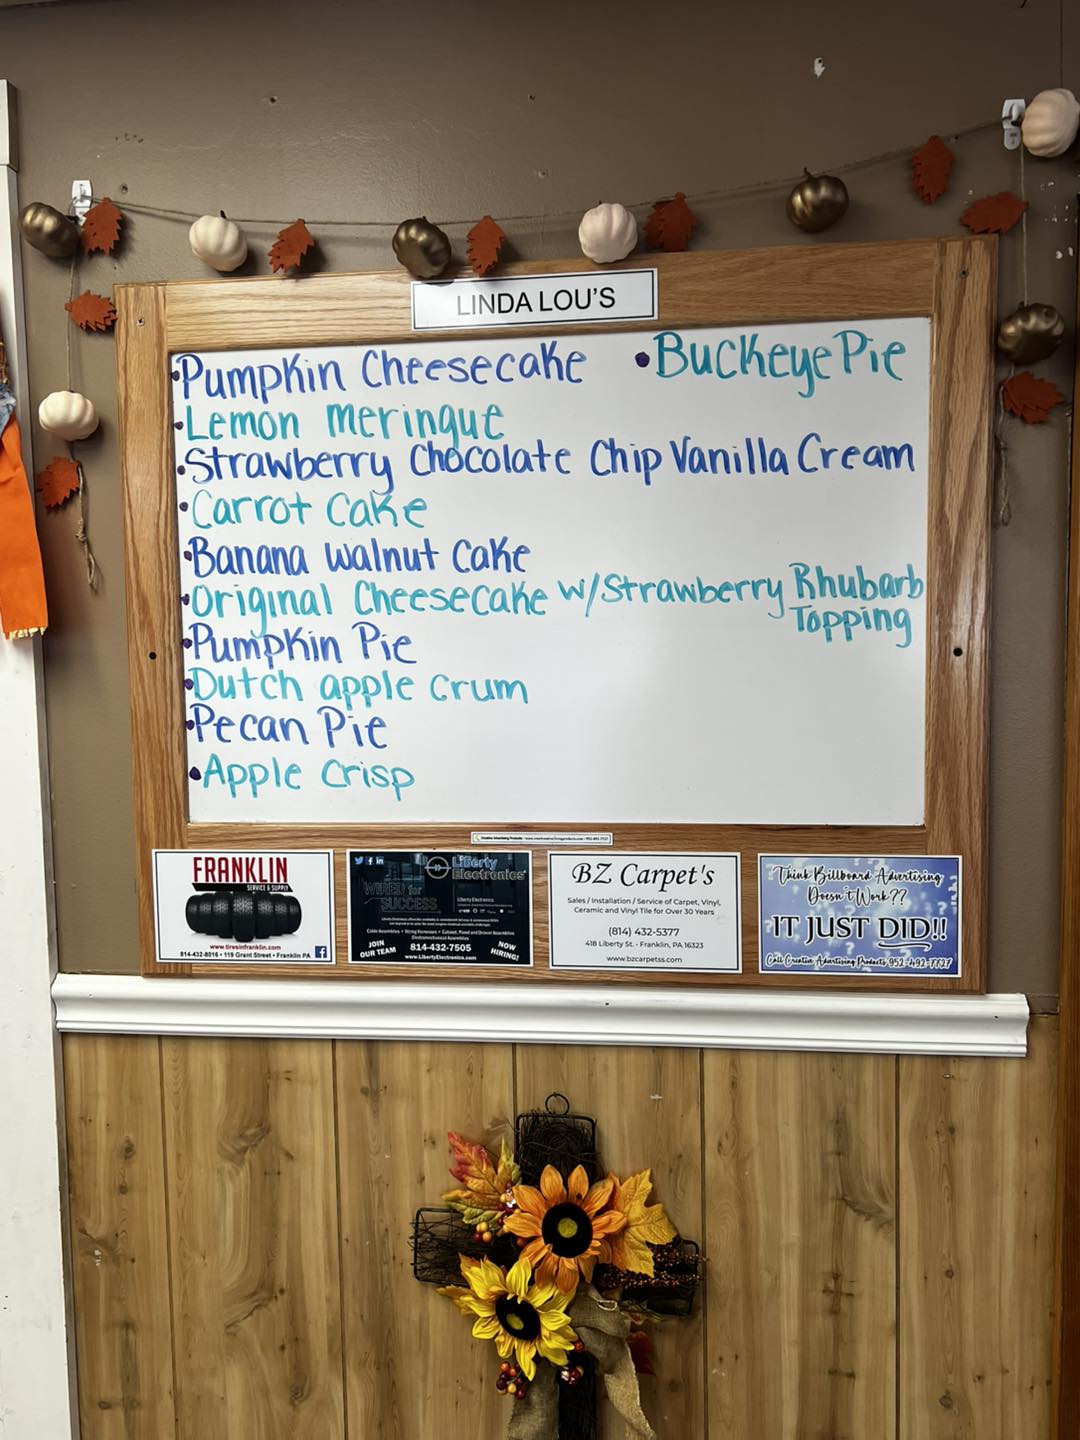 LINDA LOU'S
•Pumpkin Cheesecake •Buckeye Pie
•Lemon Meringue
•Strawberry Chocolate Chip Vanilla Cream
•Carrot Cake
•Banana Walnut Cake
•Original Cheesecake w/Strawberry Rhubarb
Topping
•Pumpkin Pie
•Dutch apple crum
•Pecan Pie
•Apple Crisp
FRANKLIN
SERVICE & SUPPLY
www.tiresinfranklin.com
814-432-8016 • 119 Grant Street • Franklin PA
Liberty
Electronics
WIRED for
SUCCESS
Liberty Electronics
JOIN
OUR TEAM
814-432-7505
www.LibertyElectronics.com
NOW
HIRING!
BZ Carpet's
Sales / Installation / Service of Carpet, Vinyl,
Ceramic and Vinyl Tile for Over 30 Years
(814) 432-5377
418 Liberty St. - Franklin, PA 16323
www.bzcarpetss.com
Think Billboard Advertising
Doesn't Work??
IT JUST DID!!
Call Creative Advertising Products 952-492-7727